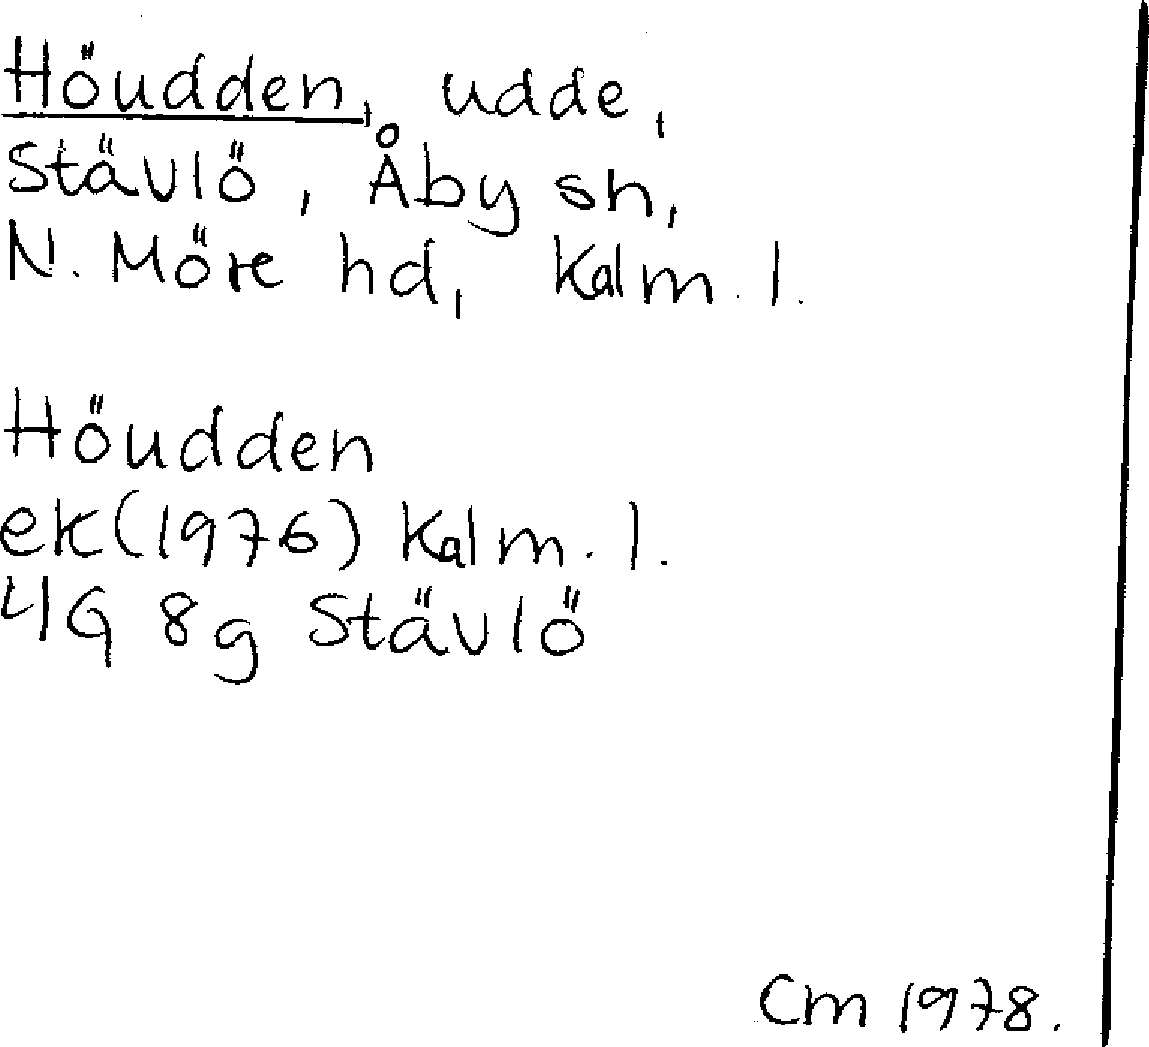 Höudden, udde,
Stävlö, Åby sn,
N. Möre hd, Kalm. l.
Höudden
ek(1976) Kalm. l.
4G 8g Stävlö
Cm 1978.